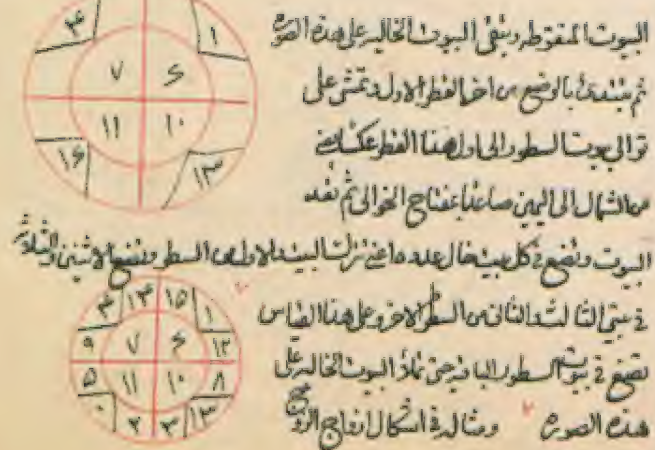 البيوت المنقوطه وتبقى البيوت الخاليه على هذه الصوره
ثم تبتدئ بالوضع من اخر القطر الاول وتمشى على
توالى بيوت السطور الى اول هذا القطر عكسا يعنى
من الشمال الى اليمين صاعدا بمفتاح الخوالى ثم تعد
البيوت وتضع فى كل بيت خال عدده اعنى تركت البيت الاول من السطر وتضع الاثنين والثلاثه
فى بيتى الثالث والثانى من السطر الاخر وعلى هذا القياس
تضع فى بيوت السطور الباقيه حتى تملأ البيوت الخاليه على
هذه الصوره ومثاله فى اشكال ازواج الزوج
۴ ۱
۷ ۶
۱۱ ۱۰
۱۶ ۱۳
۴ ۱۴ ۱۵ ۱
۹ ۷ ۶ ۱۲
۵ ۱۱ ۱۰ ۸
۲ ۳ ۱۳